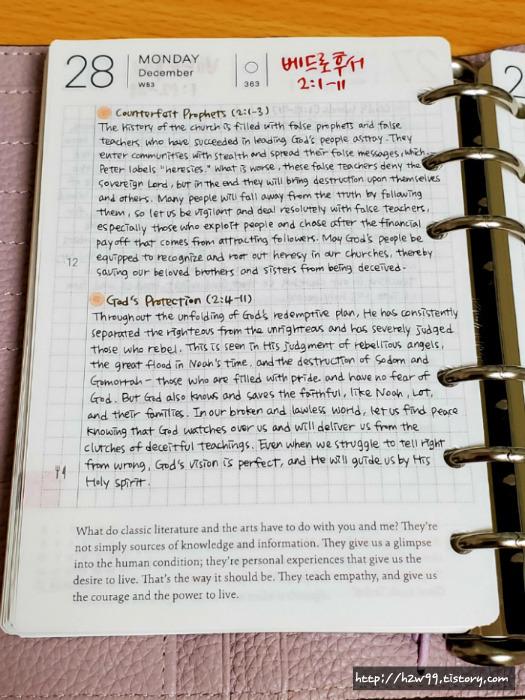 28
MONDAY
December
W53
363
베드로후서
2:1-11
Counterfeit Prophets (2:1-3)
The history of the church is filled with false prophets and false
teachers who have succeeded in leading God's people astray. They
enter communities with stealth and spread their false messages, which
Peter labels "heresies." What is worse, these false teachers deny the
sovereign Lord, but in the end they will bring destruction upon themselves
and others. Many people will fall away from the truth by following
them, so let us be vigilant and deal resolutely with false teachers,
especially those who exploit people and chase after the financial
payoff that comes from attracting followers. May God's people be
12
equipped to recognize and root out heresy in our churches, thereby
saving our beloved brothers and sisters from being deceived.
God's Protection (2:4-11)
Throughout the unfolding of God's redemptive plan, He has consistently
separated the righteous from the unrighteous and has severely judged
those who rebel. This is seen in His judgment of rebellious angels,
the great flood in Noah's time, and the destruction of Sodom and
Gomorrah - those who are filled with pride and have no fear of
God. But God also knows and saves the faithful, like Noah, Lot,
and their families. In our broken and lawless world, let us find peace
knowing that God watches over us and will deliver us from the
clutches of deceitful teachings. Even when we struggle to tell right
from wrong, God's vision is perfect, and He will guide us by His
Holy Spirit.
What do classic literature and the arts have to do with you and me? They're
not simply sources of knowledge and information. They give us a glimpse
into the human condition; they're personal experiences that give us the
desire to live. That's the way it should be. They teach empathy, and give us
the courage and the power to live.
2
http://h2w99.tistory.com